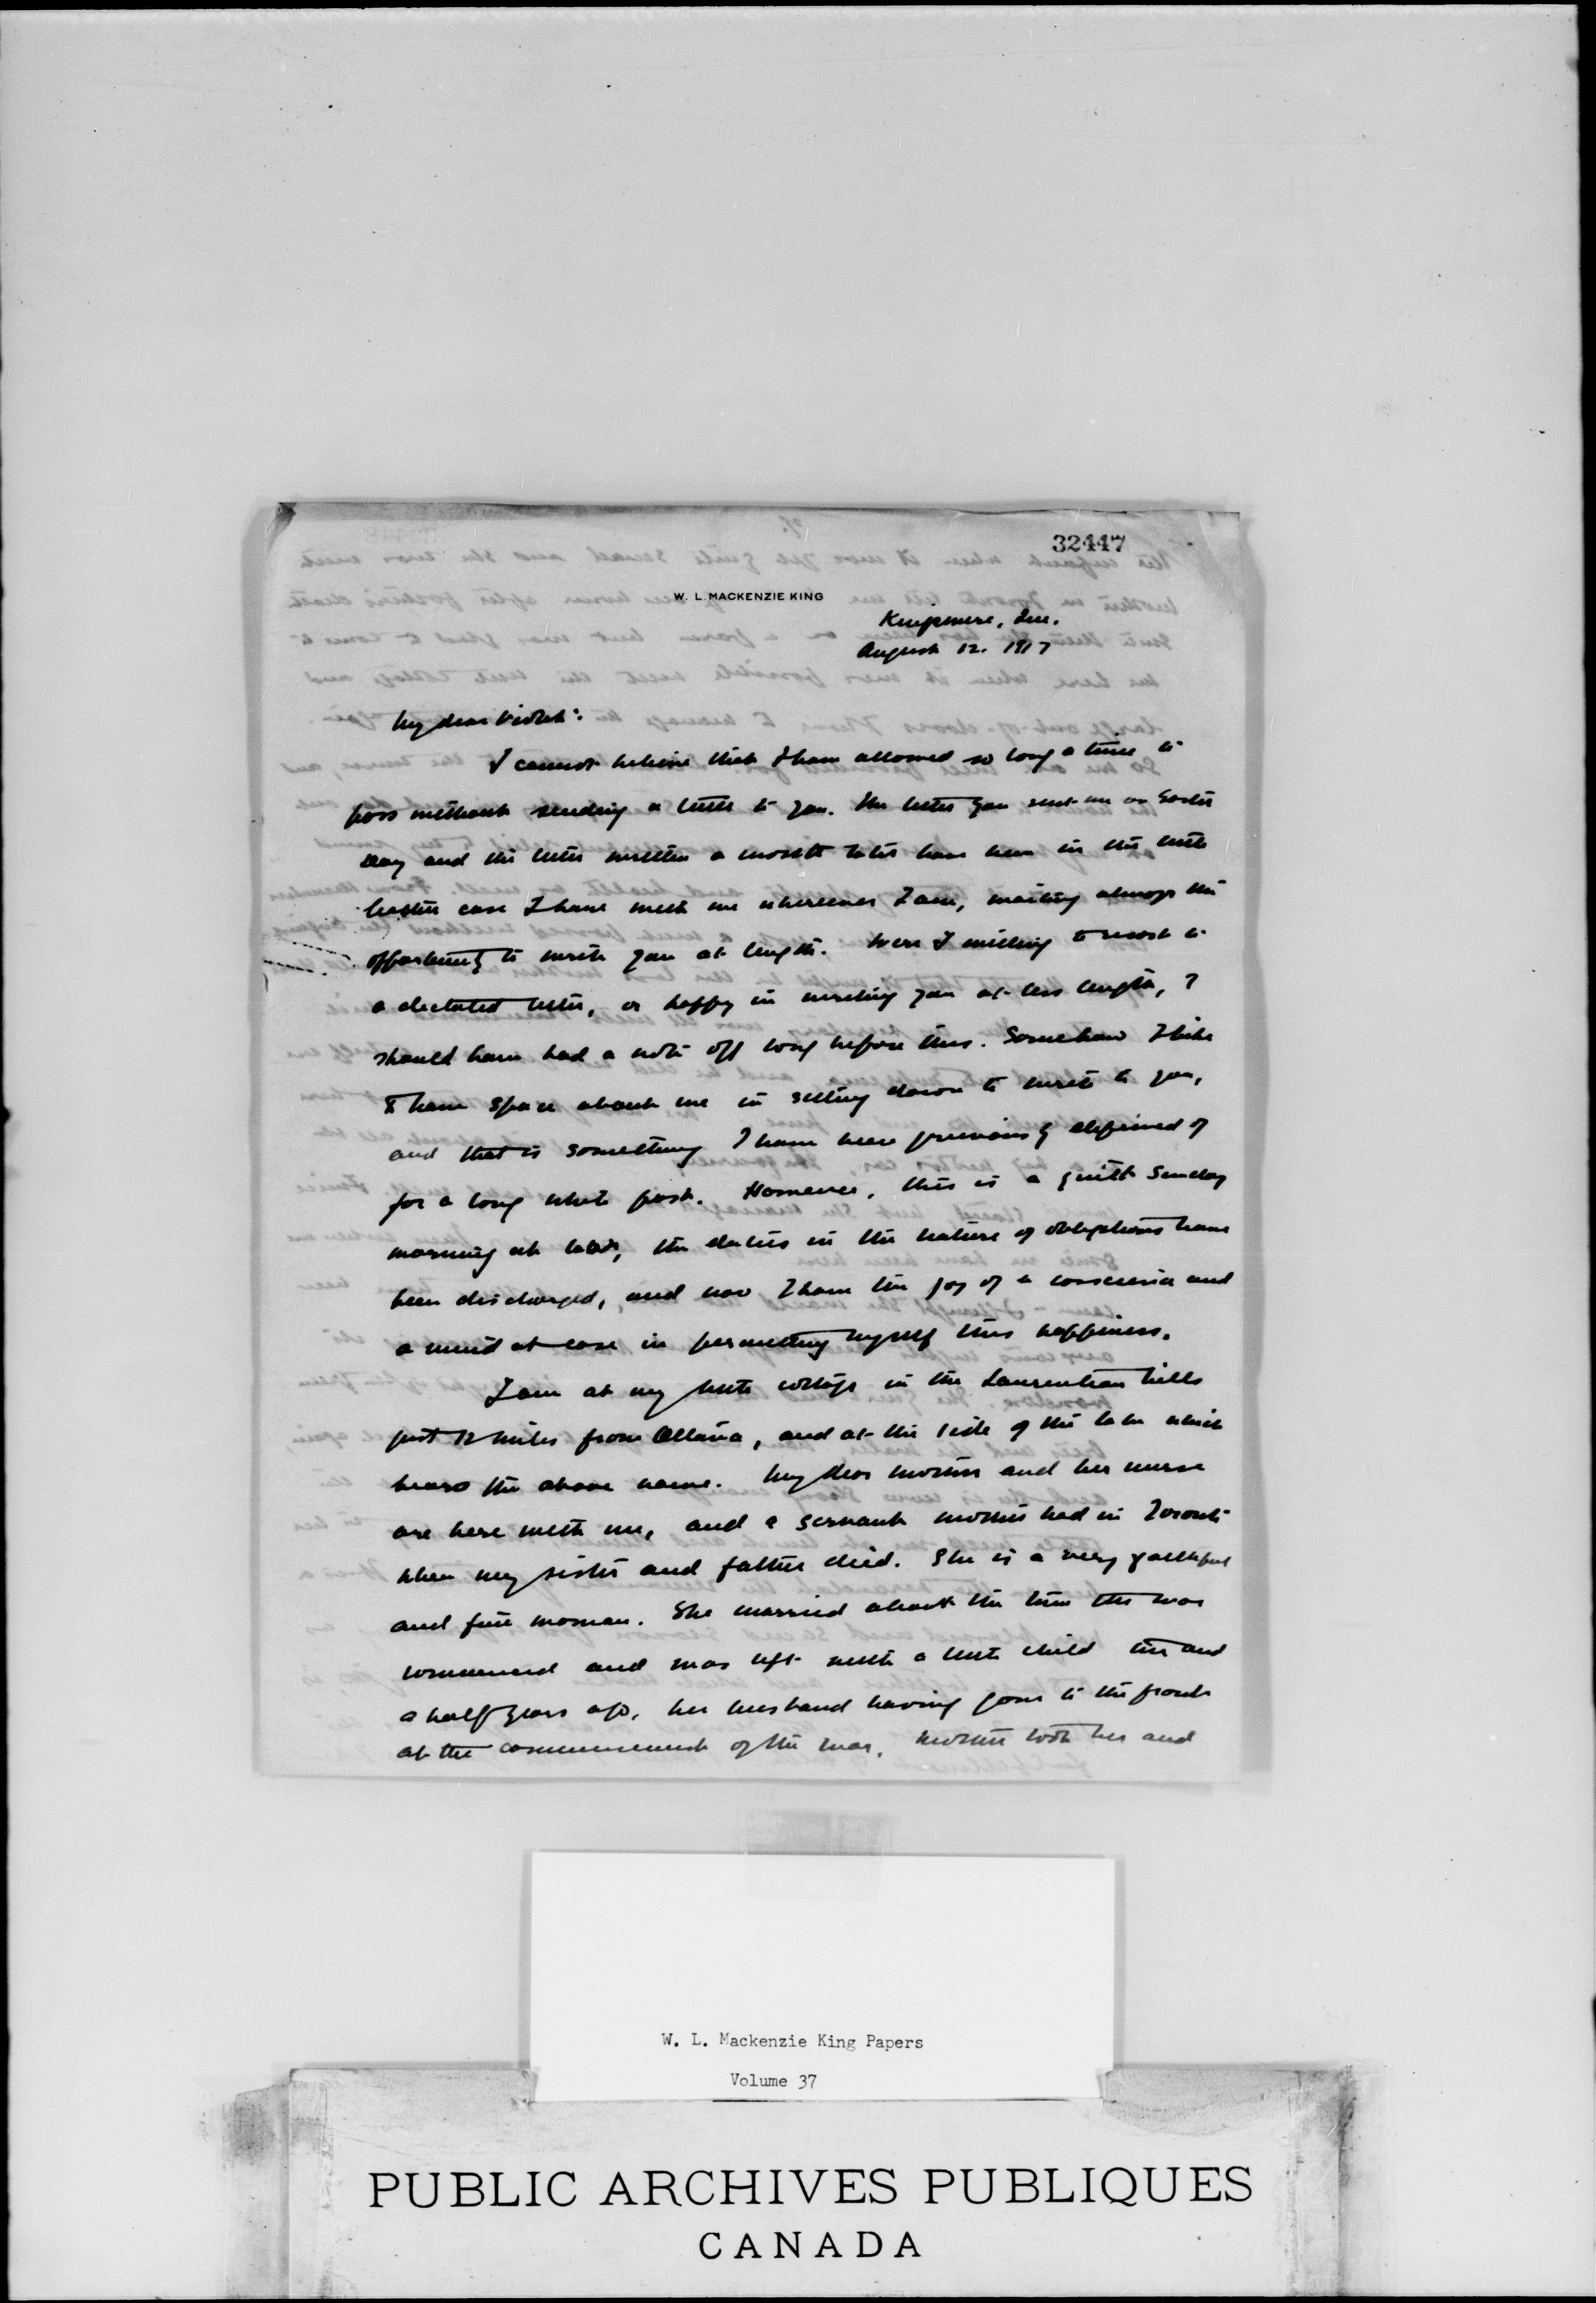 32447
W. L. MACKENZIE KING
Kingsmere, Que.
August 12. 1917
My dear Violet:
I cannot believe that I have allowed so long a time to
pass without sending a letter to you. The letter you sent me on Easter
Day and the letter written a month later have been in the little
leather case I have with me wherever I am, waiting always the
opportunity to write you at length. Were I willing to resort to
a dictated letter, or happy in writing you at less length, I
should have had a note off long before this. Somehow I like
to have space about me in sitting down to write to you,
and that is something I have been grievously deprived of
for a long while past. However, this is a quiet Sunday
morning at last, the duties in the nature of obligations have
been discharged, and now I have the joy of a conscience and
a mind at ease in permitting myself this happiness.
I am at my little cottage in the Laurentian hills
just 12 miles from Ottawa, and at the side of the lake which
bears the above name. My dear mother and her nurse
are here with me, and a servant mother had in Toronto
when my sister and father died. She is a very faithful
and fine woman. She married about the time the war
commenced and was left with a little child two and
a half years ago, her husband having gone to the front
at the commencement of the war. Mother took her and
W. L. Mackenzie King Papers
Volume 37
PUBLIC ARCHIVES PUBLIQUES
CANADA